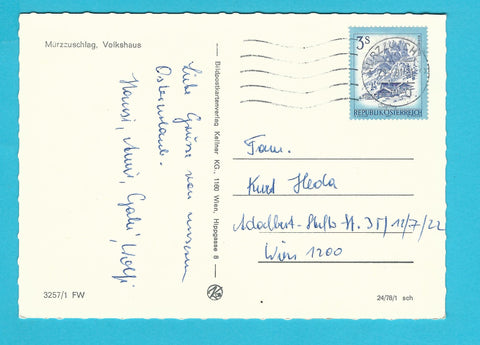 Mürzzuschlag, Volkshaus
Liebe Grüsse von unserem
Osterurlaub.
Hansi, Gabi, Wolfi
3257/1 FW
Bildpostkartenverlag Kellner KG., 1180 Wien, Hippgasse 8
3S
REPUBLIK ÖSTERREICH
Fam.
Kurt Heda
Adalbert-Stifter-St. 35/12/7/22
Wien 1200
24/78/1 sch